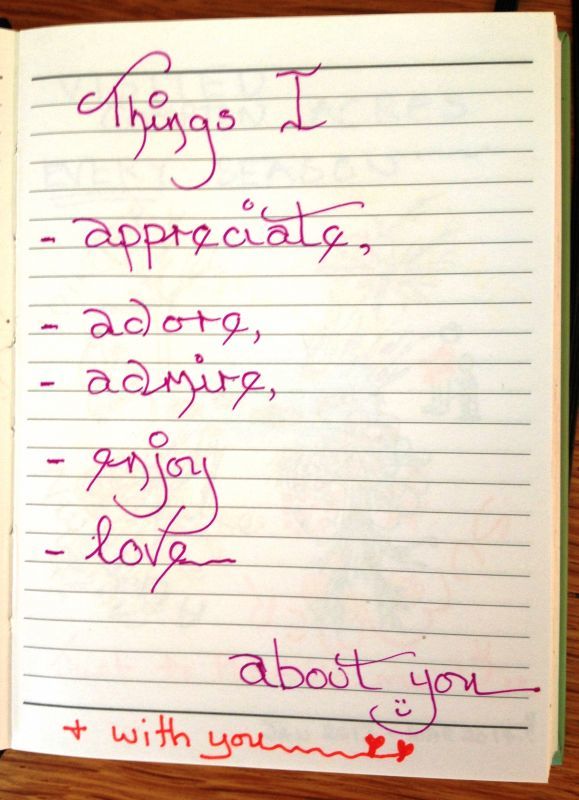 Things I
- appreciate,
- adore,
- admire,
- enjoy
- love
about you
+ with you